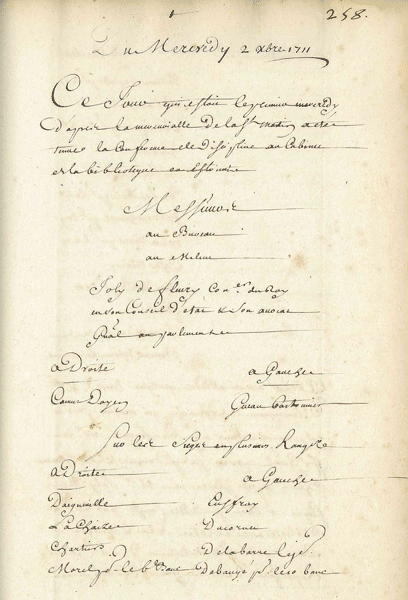 258.
Du Mercredy 2 xbre 1711
Ce Jour qui estoit le premier mercredy
d'apres la mercurialle de la St martin a esté
tenue la Conference de Discipline au Cabinet
et la bibliotheque
Messieurs
au Bureau
au milieu
Joly de fleury Conser du Roy
en son Conseil d'etat & son avocat
gñal au parlement
a Droite
a Gauche
Doyen
Gueau
Sur les Sieges en plusieurs Rangs
a Droite
a Gauche
Daigueville
Cuffroy
La Chaize
Ducornet
Chartier
Delabarre
Morel pr. le banc
pr. le banc